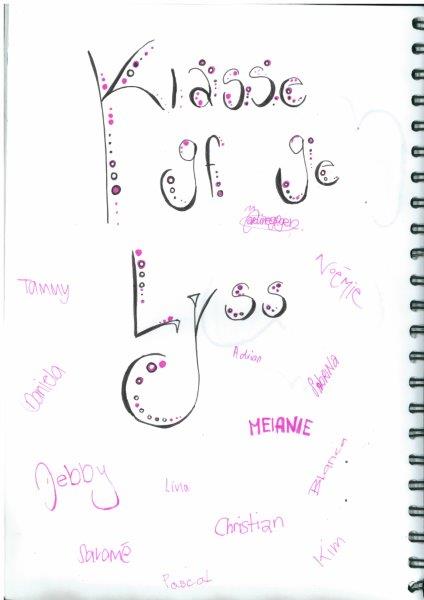 Klasse
gf ge
Lyss
Noëmie
Tammy
Adrian
Daniela
MElANIE
Debby
Livia
Bianca
Christian
Salomé
Kim
Pascal